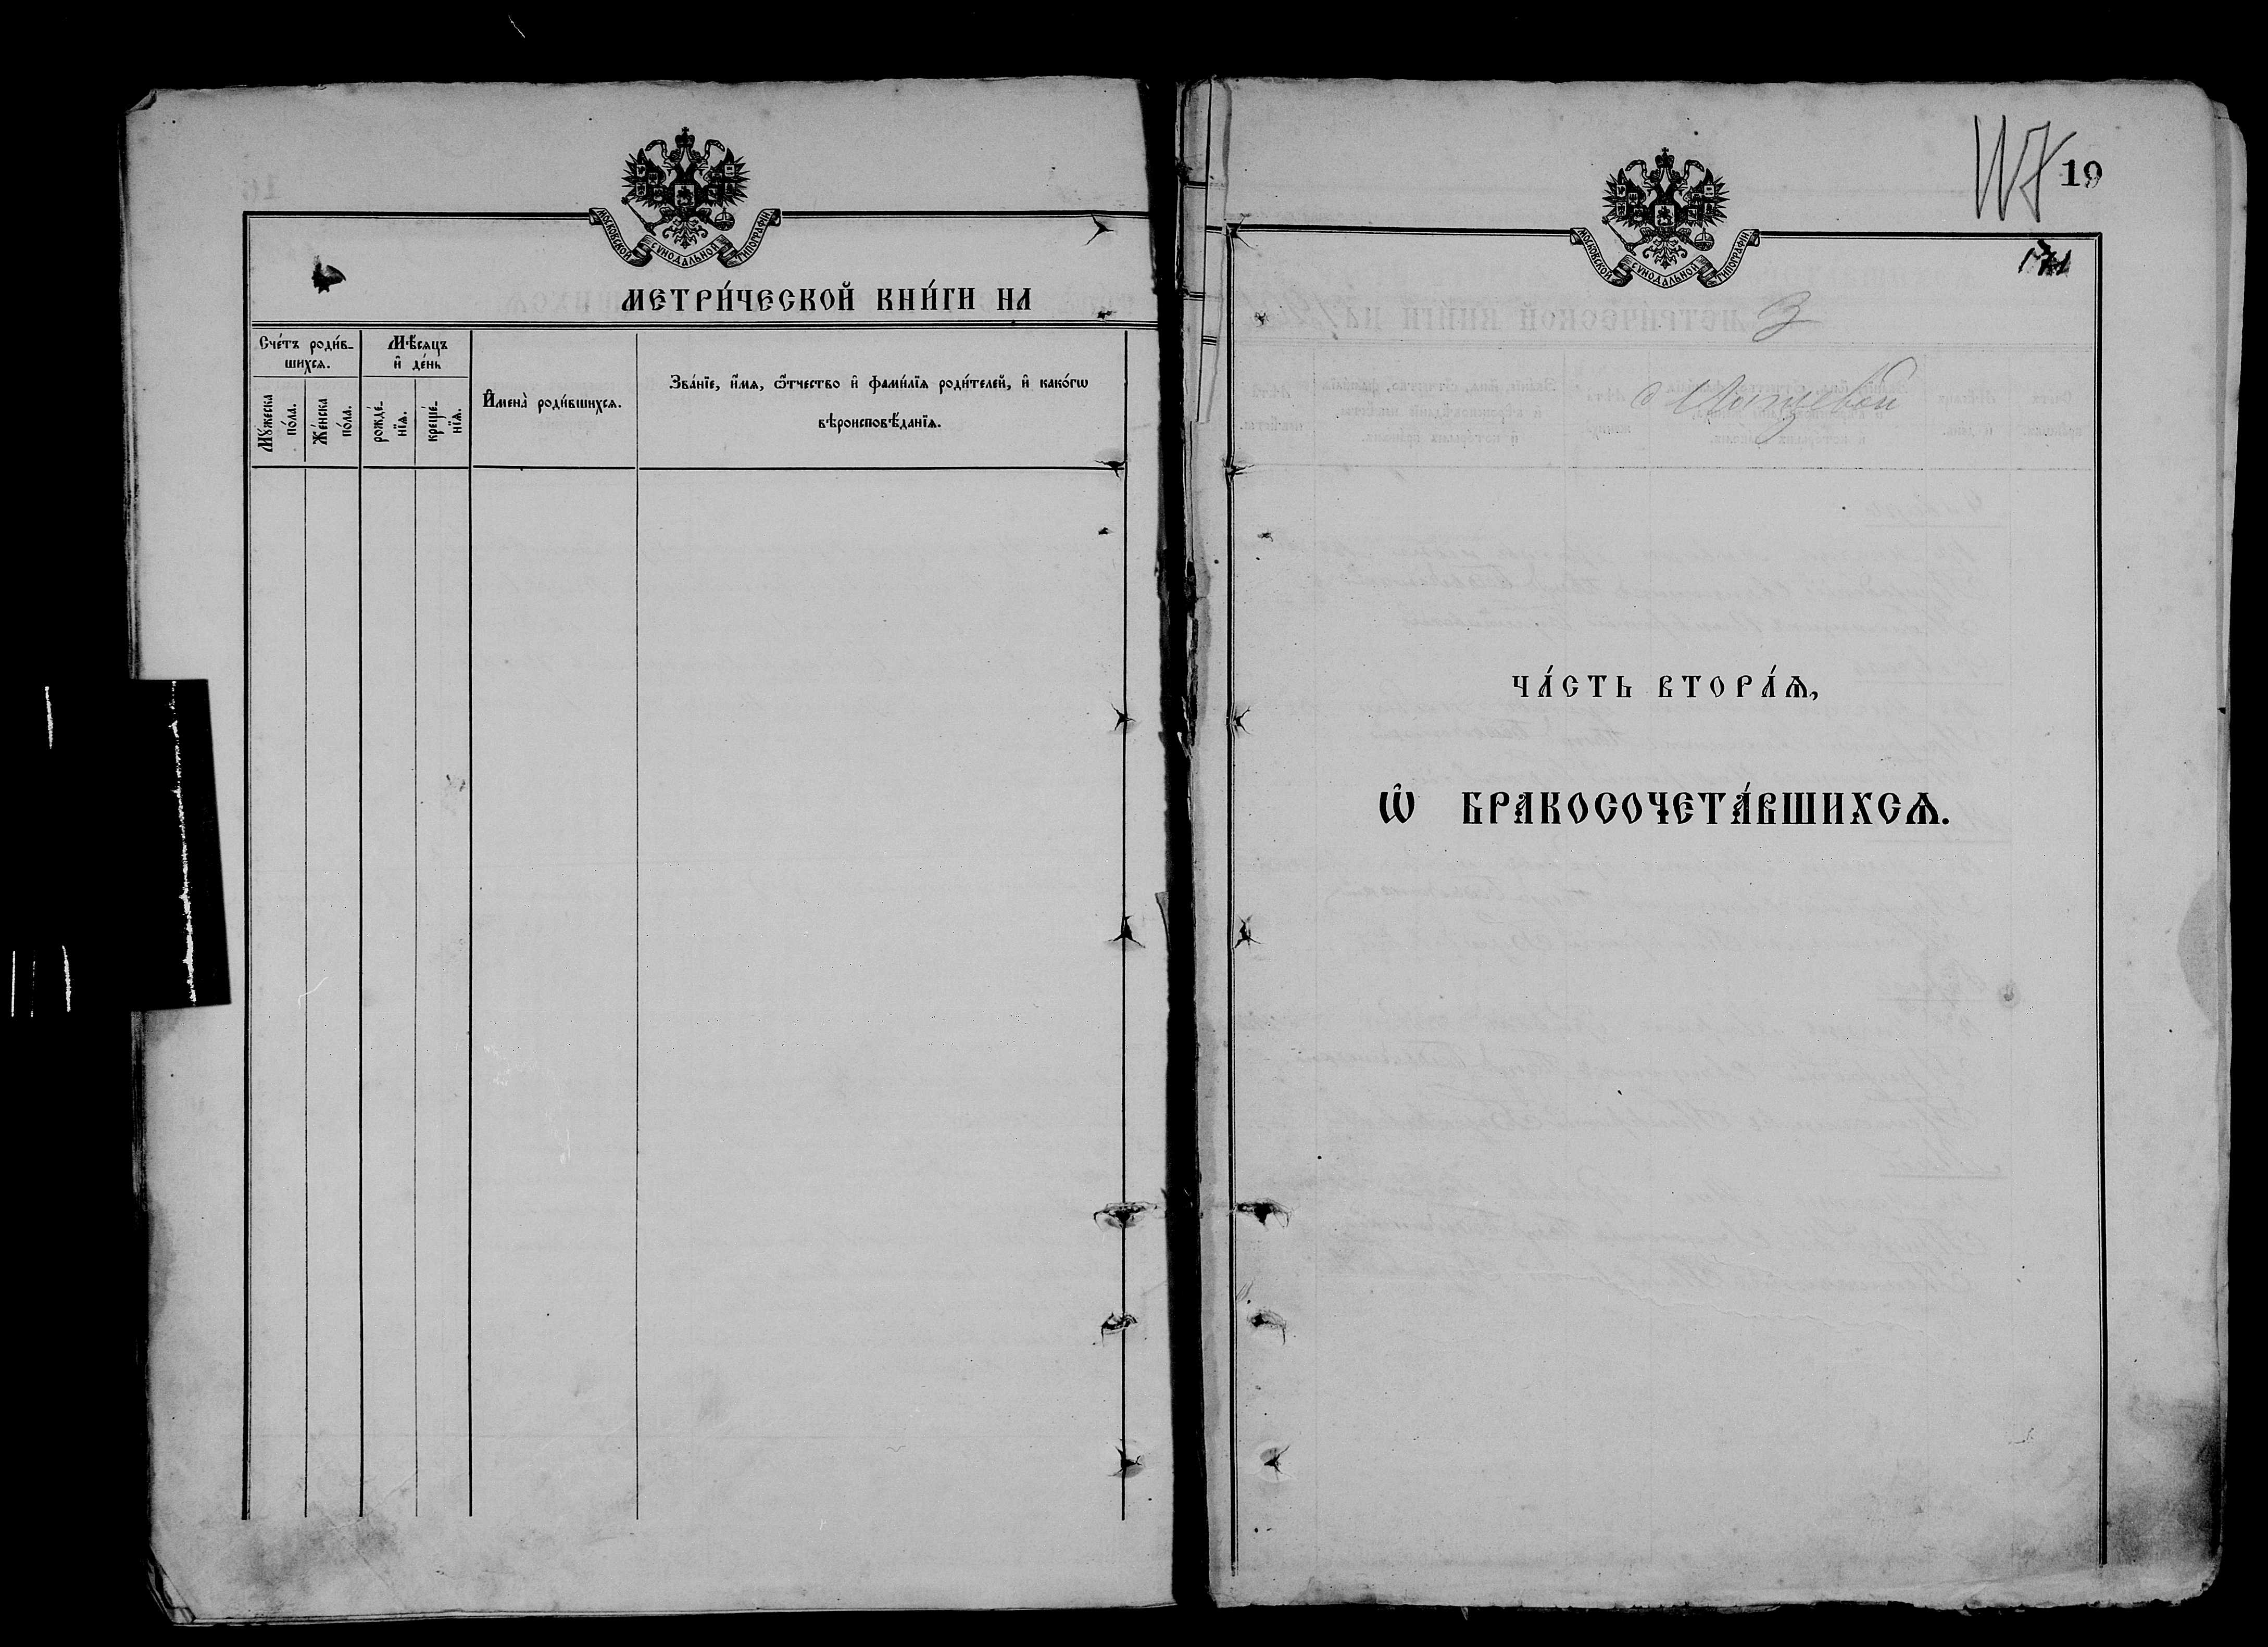 МОСКОВСКОЙ СѴНОДАЛЬНОЙ ТИПОГРАФІИ
МЕТРИ́ЧЕСКОЙ КНИ́ГИ НА
Сче́тъ роди́в-
шихсѧ.
Мꙋ́жеска
по́ла.
Же́нска
по́ла.
Мѣ́сѧцъ
и҆ де́нь
рожде́-
нїѧ.
креще́-
нїѧ.
И҆мена̀ роди́вшихсѧ.
Зва́нїе, и҆́мѧ, ѻ҆́тчество и҆ фами́лїѧ роди́телей, и҆ како́гѡ
вѣроисповѣ́данїѧ.
19
МОСКОВСКОЙ СѴНОДАЛЬНОЙ ТИПОГРАФІИ
3
ЧА́СТЬ ВТОРА́Ѧ,
Ѡ҆ БРАКОСОЧЕТА́ВШИХСѦ.